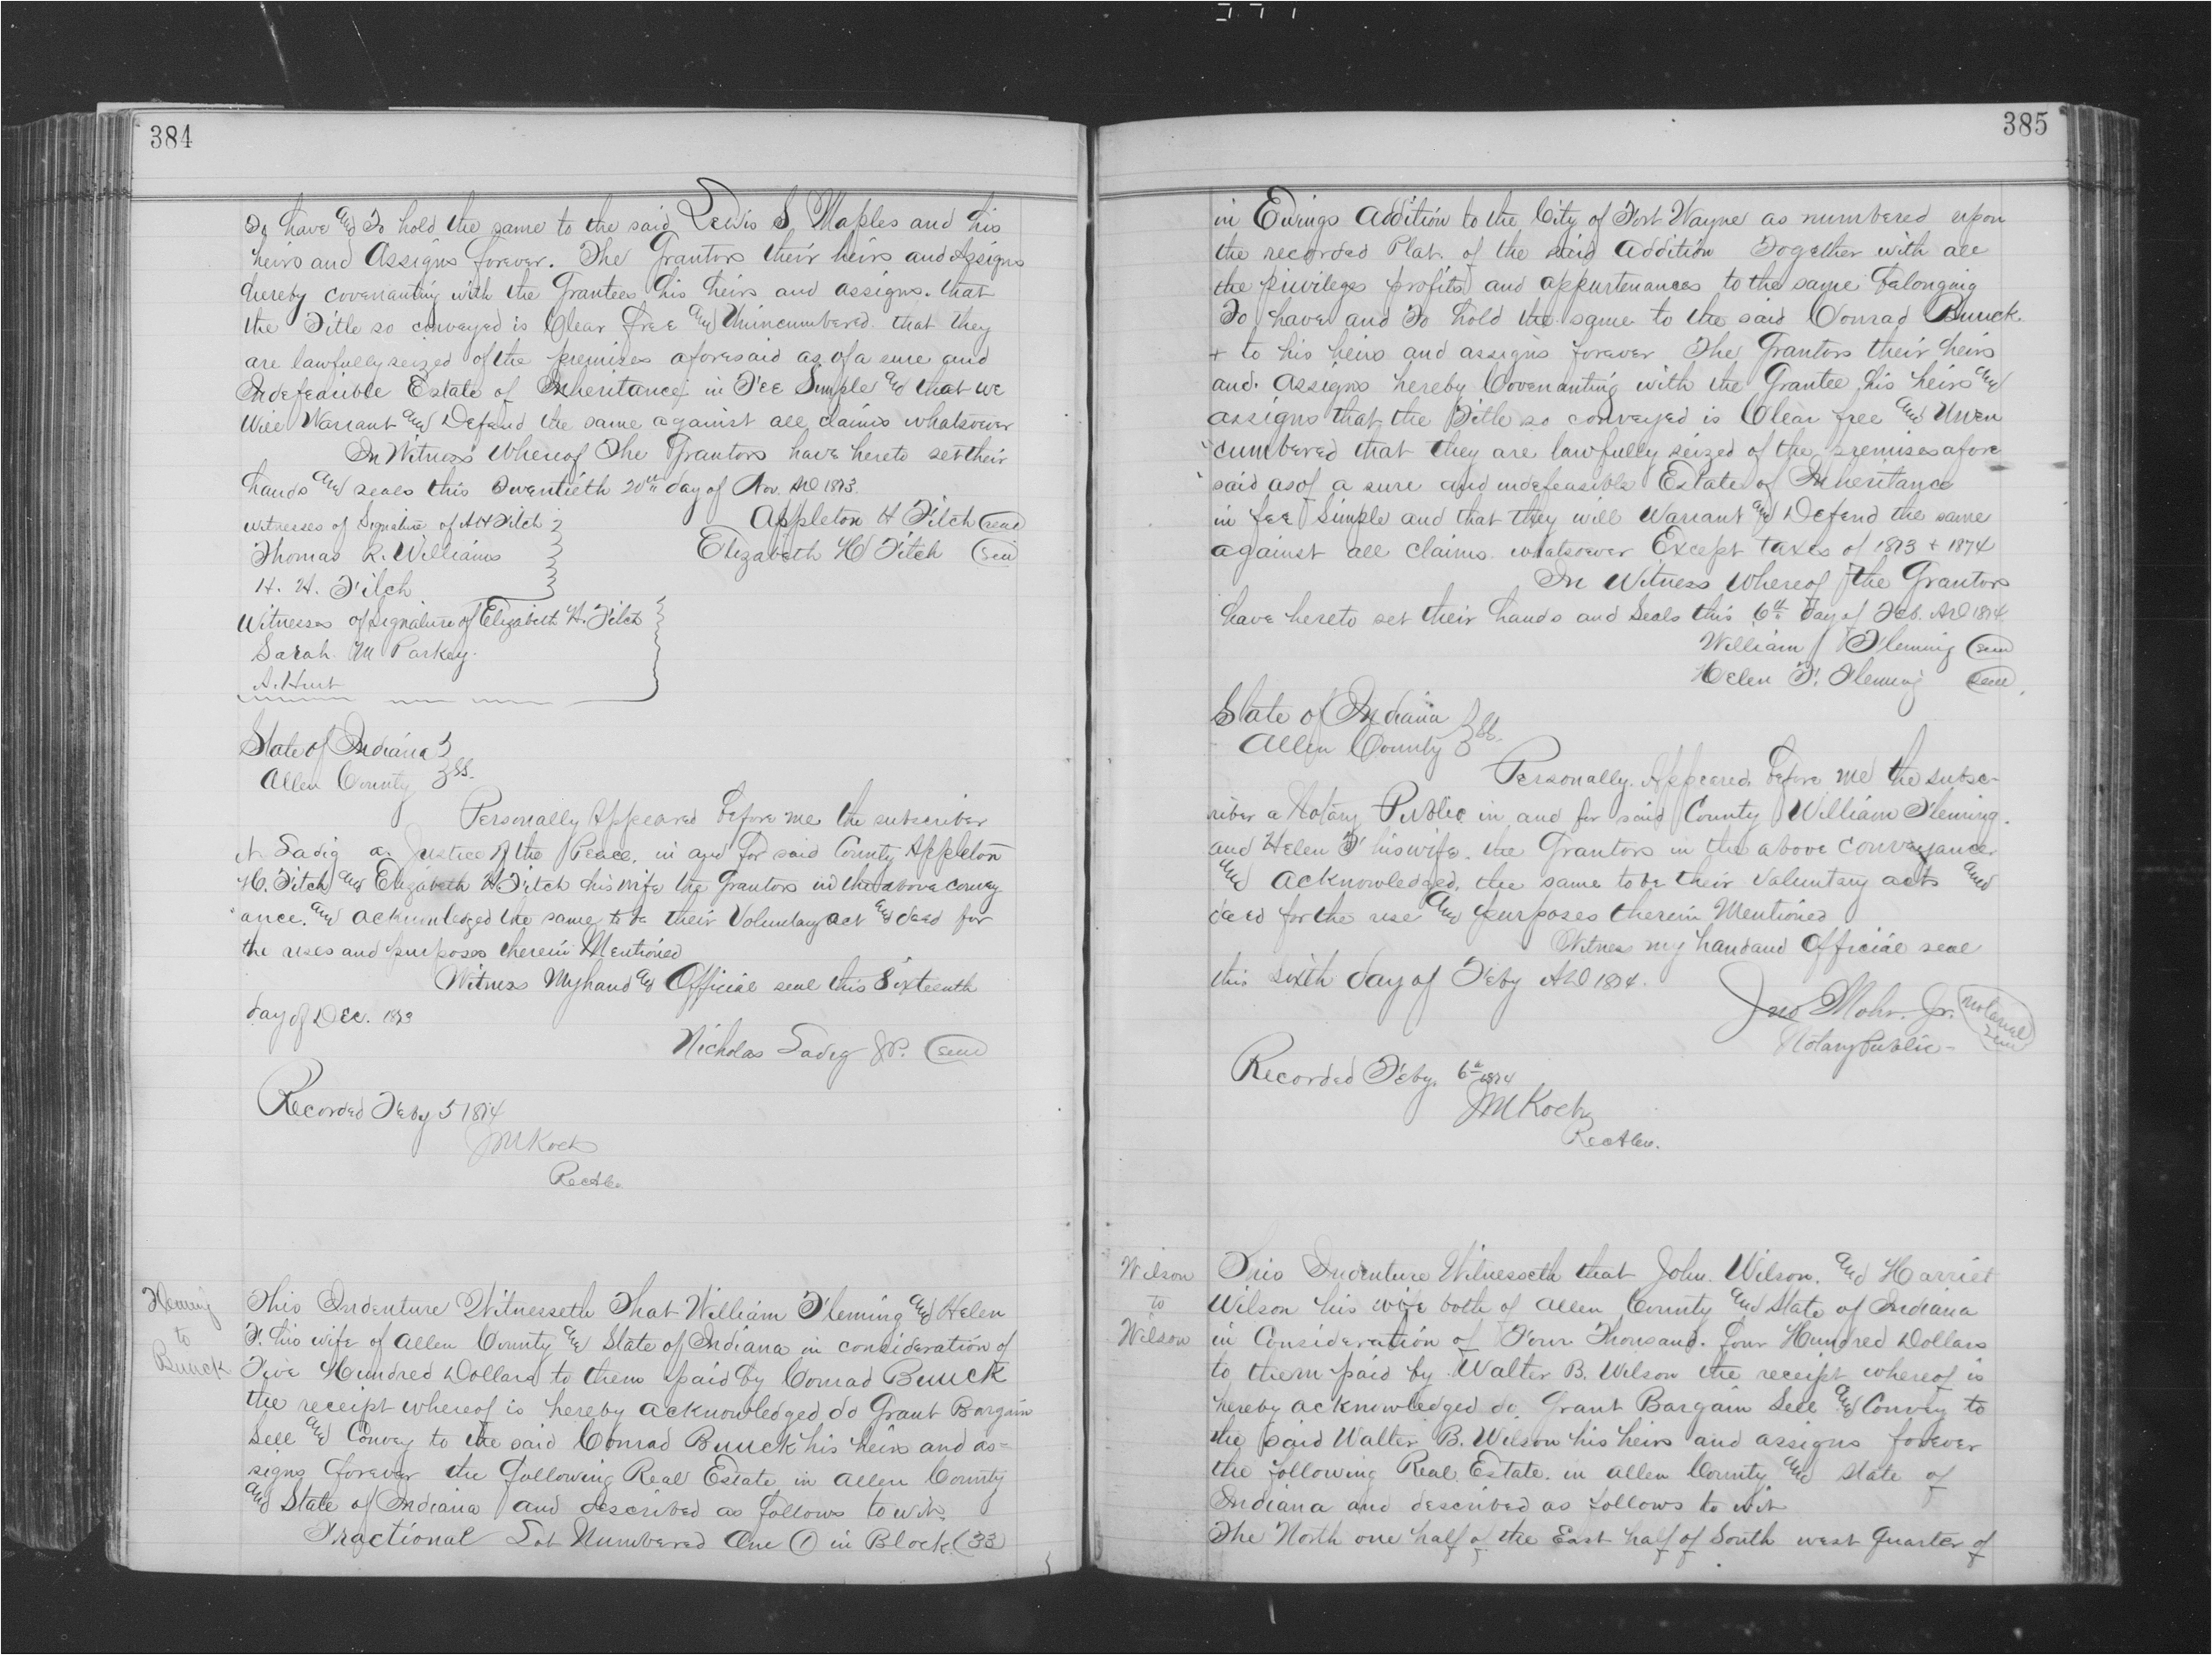 384
To have and To hold the same to the said Lewis S Maples and his
heirs and Assigns forever. The Grantors their heirs and Assigns
hereby covenanting with the Grantees his heirs and assigns. that
the Title so conveyed is Clear free and Unincumbered. that they
are lawfully seized of the premises aforesaid as of a sure and
Indefeasible Estate of Inheritance in Fee Simple and that we
Will Warrant and Defend the same against all claims whatsoever
In Witness Whereof The Grantors have hereto set their
hands and seals this Twentieth 20th day of Nov. AD 1873.
Witnesses of Signature of A H Fitch
Appleton H Fitch (seal)
Thomas R. Williams
Elizabeth H Fitch (seal)
H. H. Fitch
Witnesses of Signature of Elizabeth H. Fitch
Sarah M Parkey.
A. Hurt
State of Indiana
Allen County ss.
Personally Appeared before me the subscriber
N. Ladig a Justice of the Peace. in and for said County Appleton
H. Fitch and Elizabeth H Fitch his wife the Grantors in the above convey
ance. and acknowledged the same to be their Voluntary act and deed for
the uses and purposes therein Mentioned
Witness My hand and Official seal this Sixteenth
day of Dec. 1873
Nicholas Ladig JP. (seal)
Recorded Feby 5 1874
JM Koch
RecAlCo
Fleming
to
Buuck
This Indenture Witnesseth That William Fleming and Helen
F. his wife of Allen County and State of Indiana in consideration of
Five Hundred Dollars to them paid by Conrad Buuck
the receipt whereof is hereby acknowledged do Grant Bargain
Sell and Convey to the said Conrad Buuck his heirs and as=
signs forever the following Real Estate in Allen County
and State of Indiana and described as follows to wit.
Fractional Lot Numbered One (1) in Block (33)
385
in Ewings Addition to the City of Fort Wayne as numbered upon
the recorded Plat. of the said Addition Together with all
the privileges profits and appurtenances to the same belonging
To have and To hold the same to the said Conrad Buuck.
+ to his heirs and assigns forever The Grantors their heirs
and. Assigns hereby Covenanting with the Grantee his heirs and
assigns that the Title so conveyed is Clear free and Unen
cumbered that they are lawfully seized of the premises afore
said as of a sure and indefeasible Estate of Inheritance
in fee Simple and that they will Warrant and Defend the same
against all claims whatsoever Except taxes of 1873 + 1874
In Witness Whereof the Grantors
have hereto set their hands and Seals this 6th day of Feb. AD 1874
William Fleming (seal)
Helen F. Fleming (seal)
State of Indiana
Allen County ss.
Personally. Appeared before me the subsc-
riber a Notary Public in and for said County William Fleming.
and Helen F his wife. the Grantors in the above conveyance
and acknowledged, the same to be their voluntary acts and
deed for the use and purposes therein Mentioned
Witness my hand and Official seal
this sixth day of Feby AD 1874.
Jno Mohr. Jr. (Notarial Seal)
Notary Public-
Recorded Feby. 6th 1874
JM Koch
RecAlCo.
Wilson
to
Wilson
This Indenture Witnesseth that John. Wilson. and Harriet
Wilson his wife both of Allen County and State of Indiana
in Consideration of Four Thousand. Four Hundred Dollars
to them paid by Walter B. Wilson the receipt whereof is
hereby acknowledged do Grant Bargain Sell and Convey to
the said Walter B. Wilson his heirs and assigns forever
the following Real Estate. in Allen County and State of
Indiana and described as follows to wit
The North one half of the East half of South west quarter of